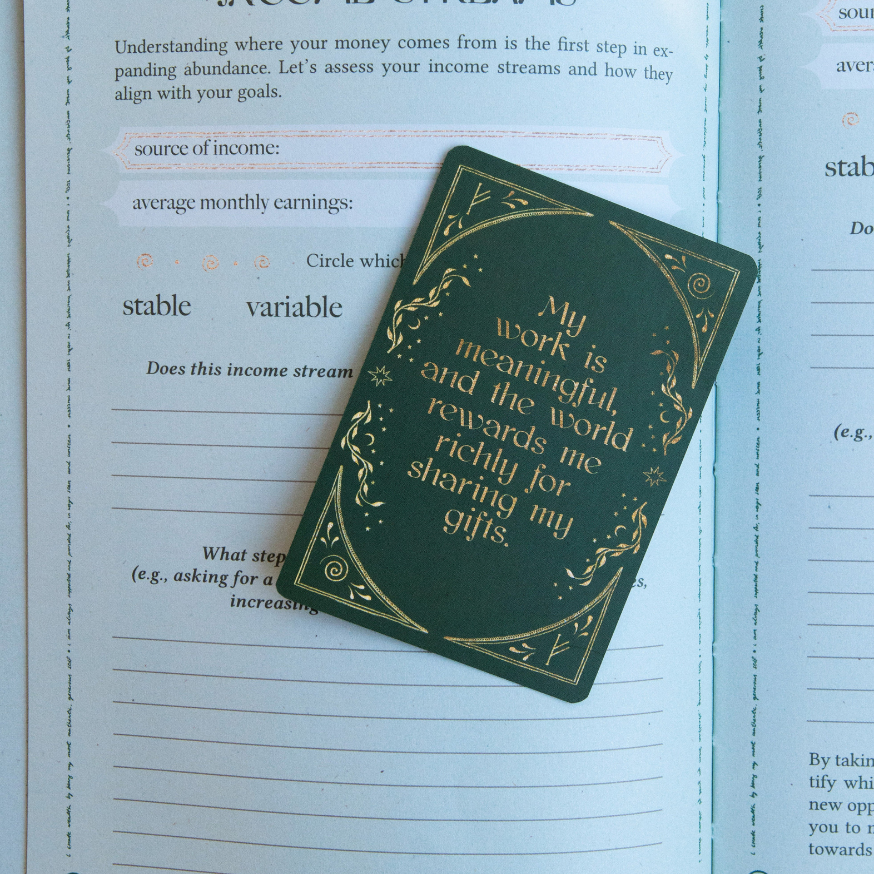 INCOME STREAMS
Understanding where your money comes from is the first step in ex-
panding abundance. Let's assess your income streams and how they
align with your goals.
source of income:
average monthly earnings:
Circle which
stable variable
Does this income stream
What step
(e.g., asking for a
increasing
My
work is
meaningful,
and the world
rewards me
richly for
sharing my
gifts.
sour
aver
stab
Do
(e.g.,
By takin
tify whi
new opp
you to
towards